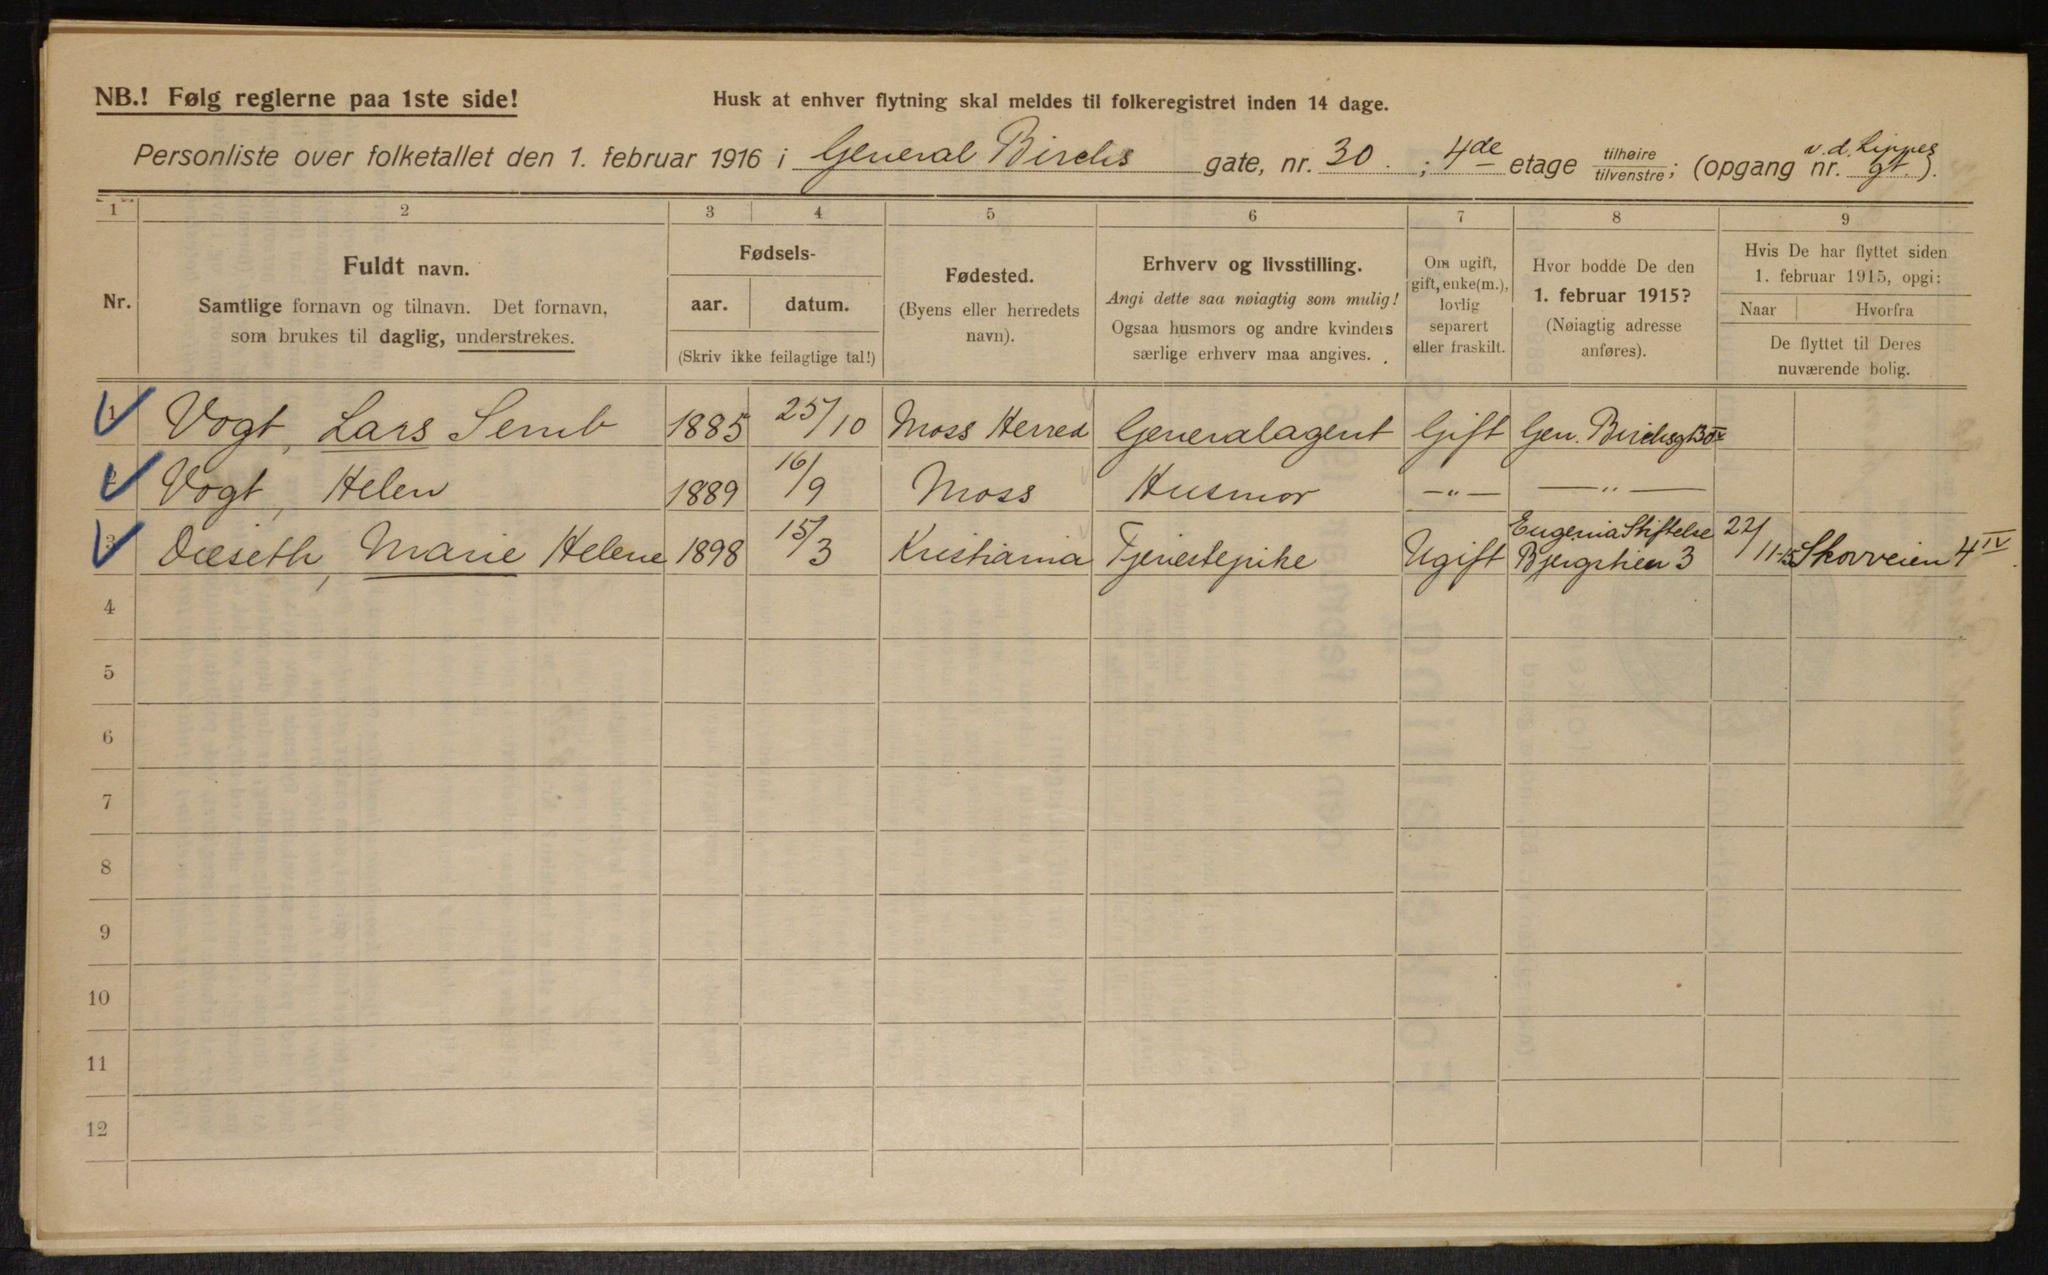 NB.! Følg reglerne paa 1ste side!
Husk at enhver flytning skal meldes til folkeregistret inden 14 dage.
Personliste over folketallet den 1. februar 1916 i General Birchs gate, nr. 30. ; 4de etage tilhøire tilvenstre; (opgang nr. v.d. Lippes gt.).
1 2 3 4 5 6 7 8 9
Nr.
Fuldt navn.
Samtlige fornavn og tilnavn. Det fornavn,
som brukes til daglig, understrekes.
Fødsels-
aar. datum.
(Skriv ikke feilagtige tal!)
Fødested.
(Byens eller herredets
navn).
Erhverv og livsstilling.
Angi dette saa nøiagtig som mulig!
Ogsaa husmors og andre kvinders
særlige erhverv maa angives.
Om ugift,
gift, enke(m.),
lovlig
separert
eller fraskilt.
Hvor bodde De den
1. februar 1915?
(Nøiagtig adresse
anføres).
Hvis De har flyttet siden
1. februar 1915, opgi:
Naar Hvorfra
De flyttet til Deres
nuværende bolig.
1 Vogt, Lars Semb 1885 25/10 Moss Herred Generalagent Gift Gen. Birchsgt 30 IV
2 Vogt, Helen 1889 16/9 Moss Husmor —"— —"—
3 Dieseth, Marie Helene 1898 15/3 Kristiania Tjenestepike Ugift Eugenia Stiftelse Bjergstien 3 22/11-15 Skovveien 4 IV
4
5
6
7
8
9
10
11
12